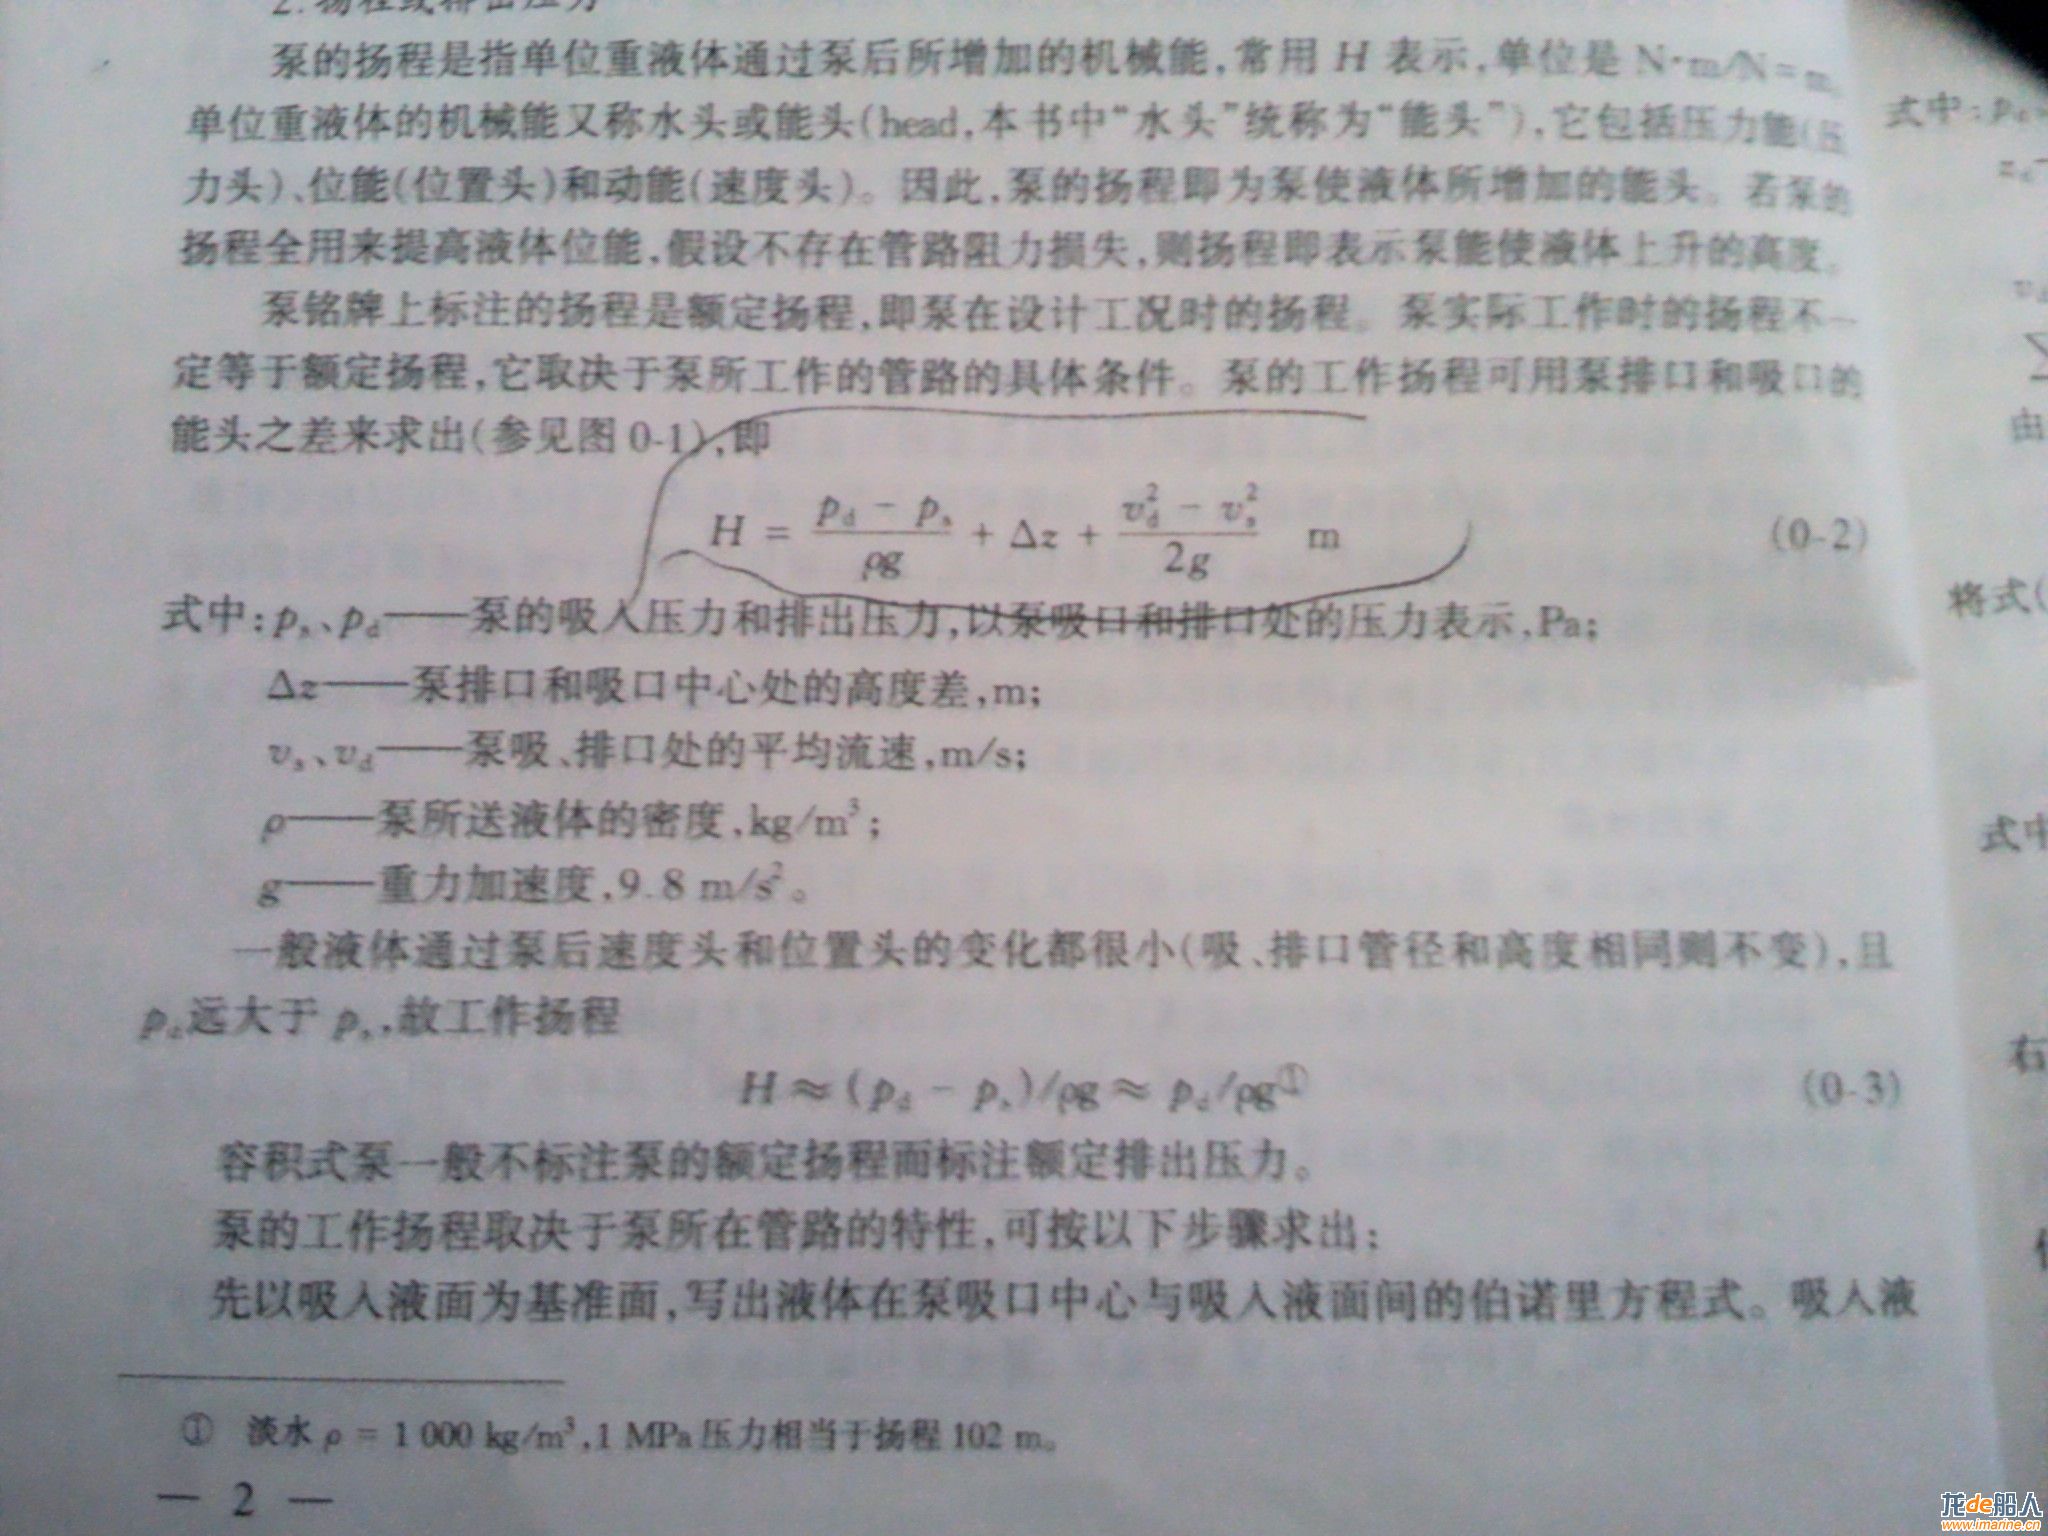 2.扬程或排出压力
泵的扬程是指单位重液体通过泵后所增加的机械能,常用 H 表示,单位是 N·m/N=m。
单位重液体的机械能又称水头或能头(head,本书中“水头”统称为“能头”),它包括压力能(压
力头)、位能(位置头)和动能(速度头)。因此,泵的扬程即为泵使液体所增加的能头。若泵的
扬程全用来提高液体位能,假设不存在管路阻力损失,则扬程即表示泵能使液体上升的高度。
泵铭牌上标注的扬程是额定扬程,即泵在设计工况时的扬程。泵实际工作时的扬程不一
定等于额定扬程,它取决于泵所工作的管路的具体条件。泵的工作扬程可用泵排口和吸口的
能头之差来求出(参见图 0-1),即
H = (p_d - p_s)/ρg + Δz + (v_d² - v_s²)/2g m (0-2)
式中:p_s、p_d——泵的吸入压力和排出压力,以泵吸口和排口处的压力表示,Pa;
Δz——泵排口和吸口中心处的高度差,m;
v_s、v_d——泵吸、排口处的平均流速,m/s;
ρ——泵所送液体的密度,kg/m³;
g——重力加速度,9.8 m/s²。
一般液体通过泵后速度头和位置头的变化都很小(吸、排口管径和高度相同则不变),且
p_d远大于 p_s,故工作扬程
H ≈ (p_d - p_s)/ρg ≈ p_d/ρg① (0-3)
容积式泵一般不标注泵的额定扬程而标注额定排出压力。
泵的工作扬程取决于泵所在管路的特性,可按以下步骤求出:
先以吸入液面为基准面,写出液体在泵吸口中心与吸入液面间的伯诺里方程式。吸入液
① 淡水 ρ = 1 000 kg/m³,1 MPa压力相当于扬程 102 m。
— 2 —
式中:p_d
z_d
v_d
由
将式(
式中
右
龙de船人
www.imarine.cn